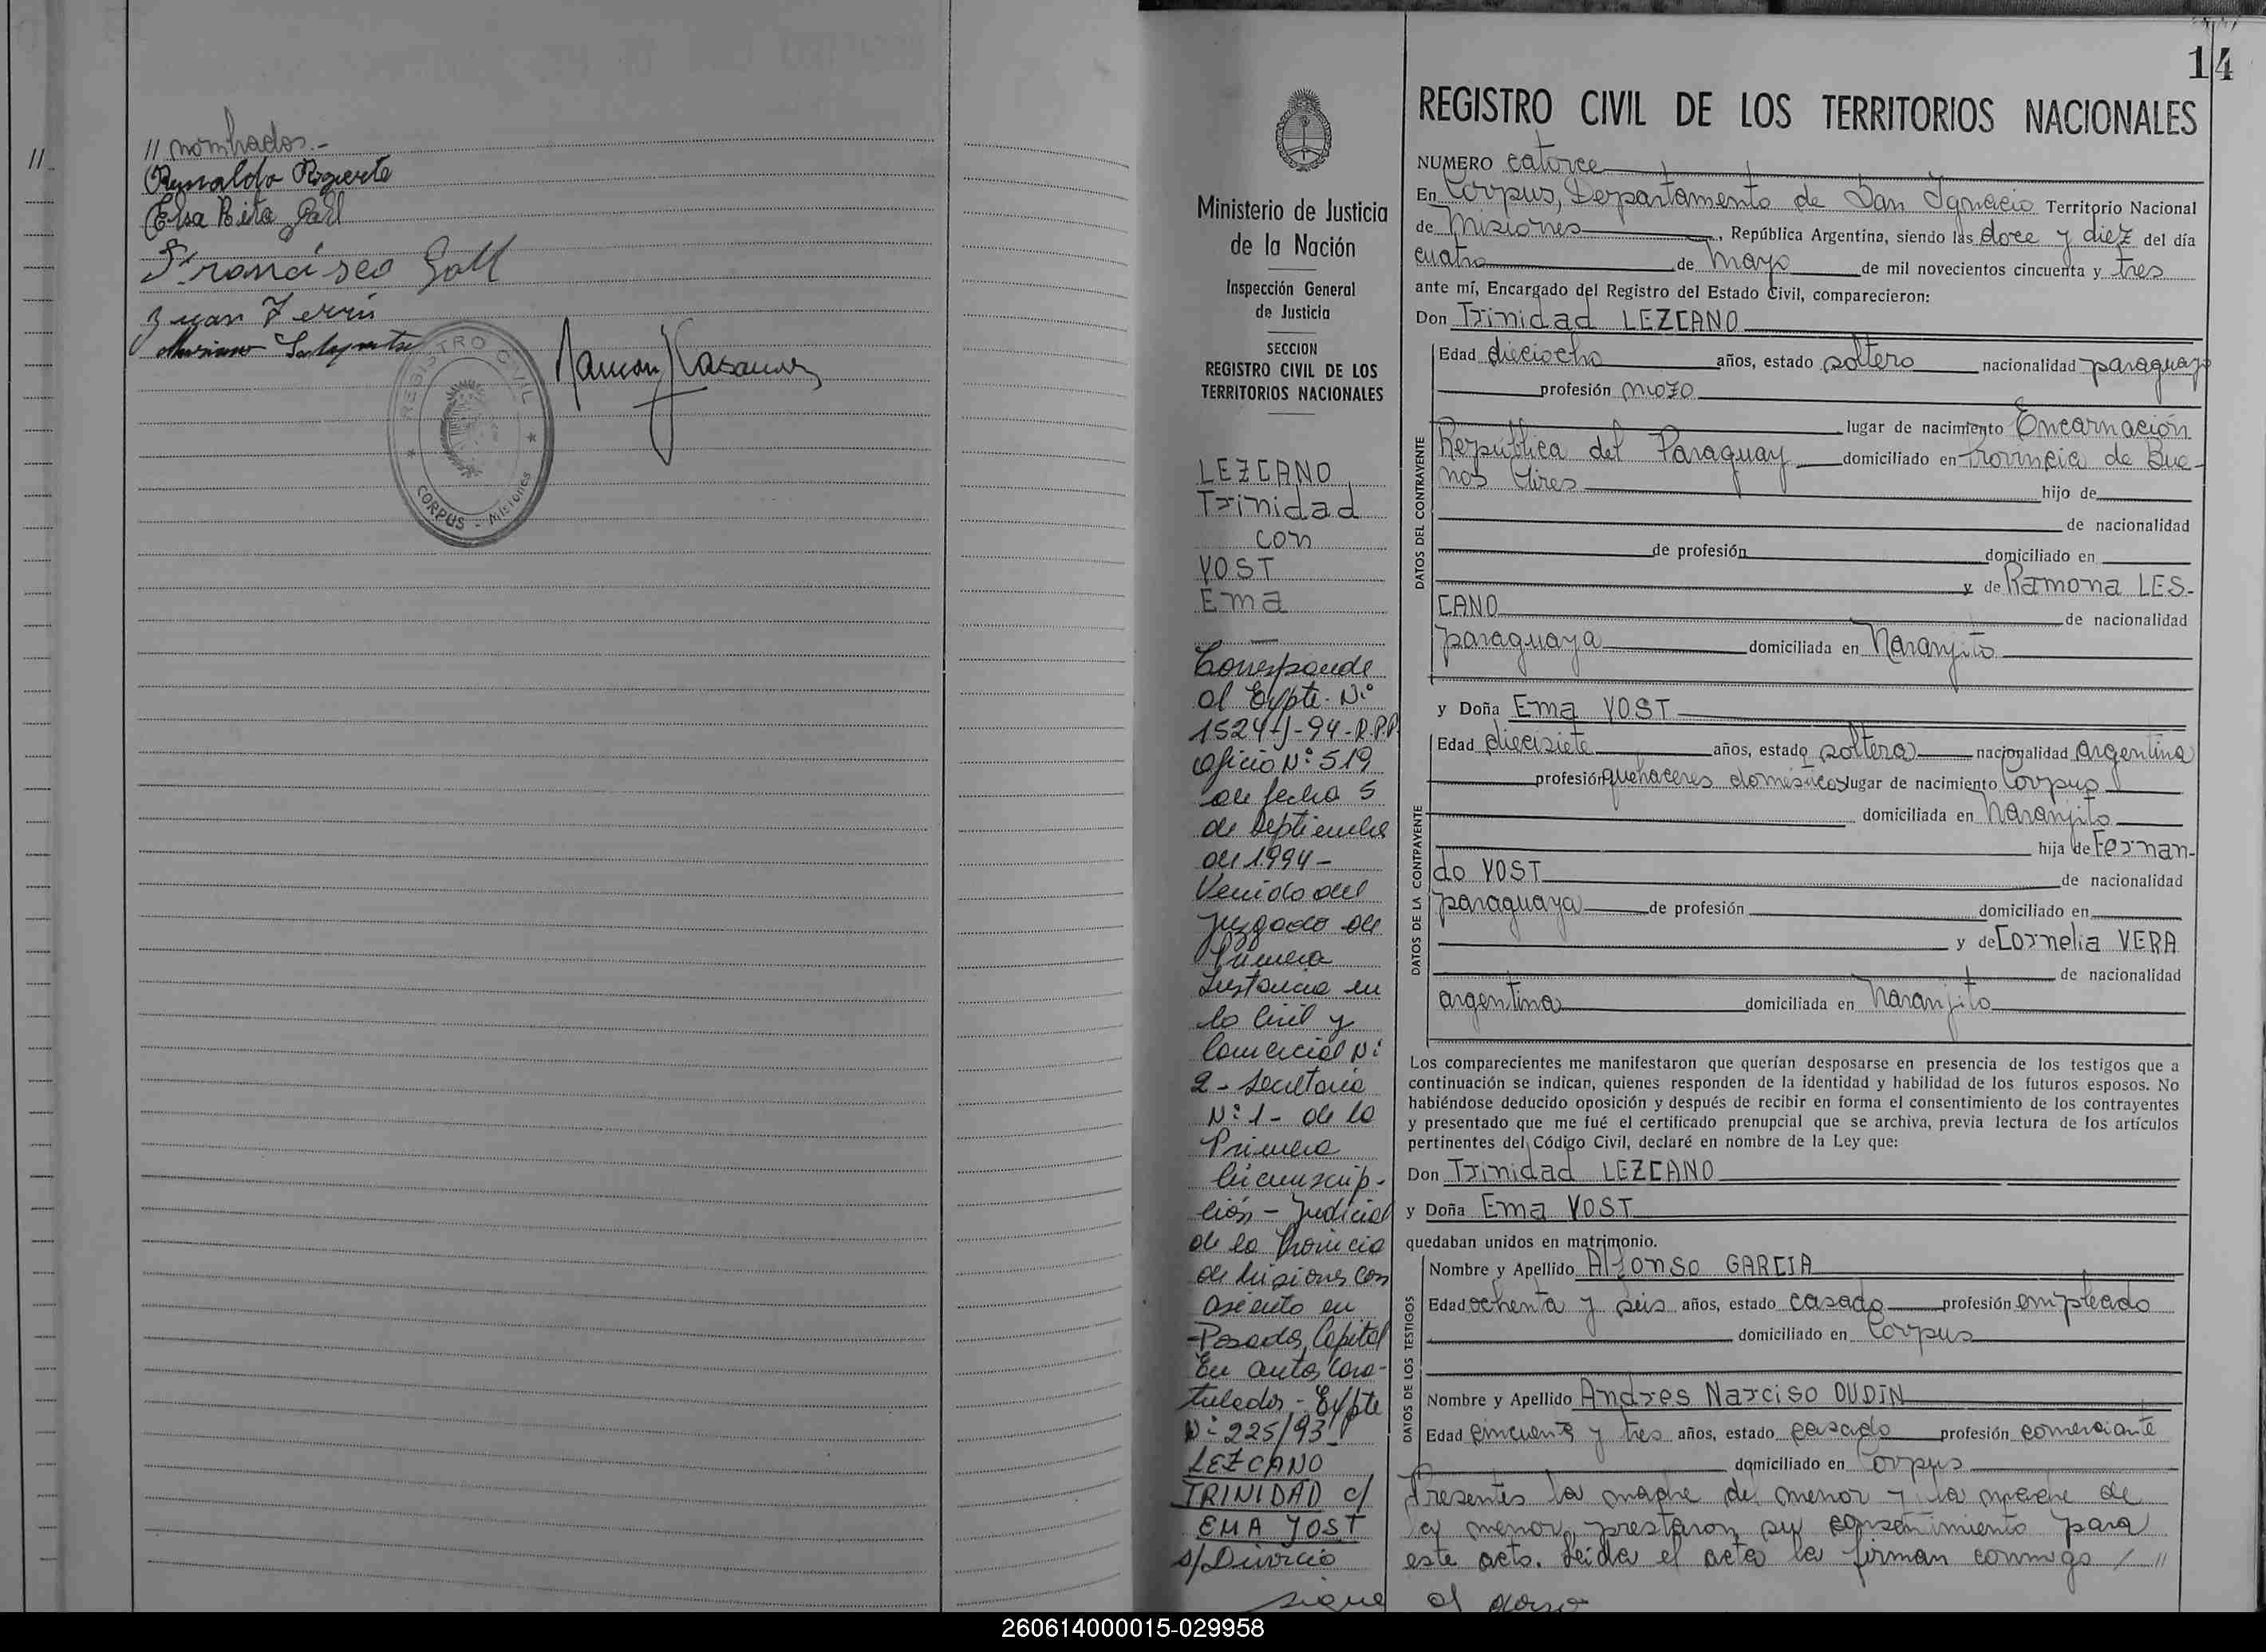 // nombrados.-
//
Elsa Rita Gall
Francisco Gall
REGISTRO CIVIL
CORPUS - Misiones
14
Ministerio de Justicia
de la Nación
Inspección General
de Justicia
SECCION
REGISTRO CIVIL DE LOS
TERRITORIOS NACIONALES
LEZCANO
Trinidad
con
YOST
Ema
Corresponde
al Expte. Nº
1524-J-94-R.P.P.
oficio Nº 519
de fecha 5
de Septiembre
de 1994-
Venido del
Juzgado de
Primera
Instancia en
lo Civil y
Comercial Nº
2 - Secretaria
Nº 1- de la
Primera
Circunscrip-
ción - Judicial
de la Provincia
de Misiones con
asiento en
Posadas, Capital
En autos Cara-
tulados - Expte
Nº 225/93
LEZCANO
TRINIDAD c/
EMA YOST
s/ Divorcio
sigue
REGISTRO CIVIL DE LOS TERRITORIOS NACIONALES
NUMERO catorce
En Corpus, Departamento de San Ignacio Territorio Nacional
de Misiones, República Argentina, siendo las doce y diez del día
cuatro de mayo de mil novecientos cincuenta y tres
ante mí, Encargado del Registro del Estado Civil, comparecieron:
Don Trinidad LEZCANO
DATOS DEL CONTRAYENTE
Edad dieciocho años, estado soltero nacionalidad paraguayo
profesión mozo
lugar de nacimiento Encarnación
República del Paraguay domiciliado en Provincia de Bue-
nos Aires hijo de
de nacionalidad
de profesión domiciliado en
y de Ramona LES-
CANO de nacionalidad
paraguaya domiciliada en Naranjito
y Doña Ema YOST
DATOS DE LA CONTRAYENTE
Edad diecisiete años, estado soltera nacionalidad argentina
profesión quehaceres domésticos lugar de nacimiento Corpus
domiciliada en Naranjito
hija de Fernan-
do YOST de nacionalidad
paraguaya de profesión domiciliado en
y de Cornelia VERA
de nacionalidad
argentina domiciliada en Naranjito
Los comparecientes me manifestaron que querían desposarse en presencia de los testigos que a
continuación se indican, quienes responden de la identidad y habilidad de los futuros esposos. No
habiéndose deducido oposición y después de recibir en forma el consentimiento de los contrayentes
y presentado que me fué el certificado prenupcial que se archiva, previa lectura de los artículos
pertinentes del Código Civil, declaré en nombre de la Ley que:
Don Trinidad LEZCANO
y Doña Ema YOST
quedaban unidos en matrimonio.
DATOS DE LOS TESTIGOS
Nombre y Apellido Alfonso GARCIA
Edad ochenta y seis años, estado casado profesión empleado
domiciliado en Corpus
Nombre y Apellido Andres Narciso OUDIN
Edad cincuenta y tres años, estado casado profesión comerciante
domiciliado en Corpus
Presentes la madre del menor y la madre de
la menor, prestaron su consentimiento para
este acto. Leida el acta la firman conmigo / //
al dorso
260614000015-029958